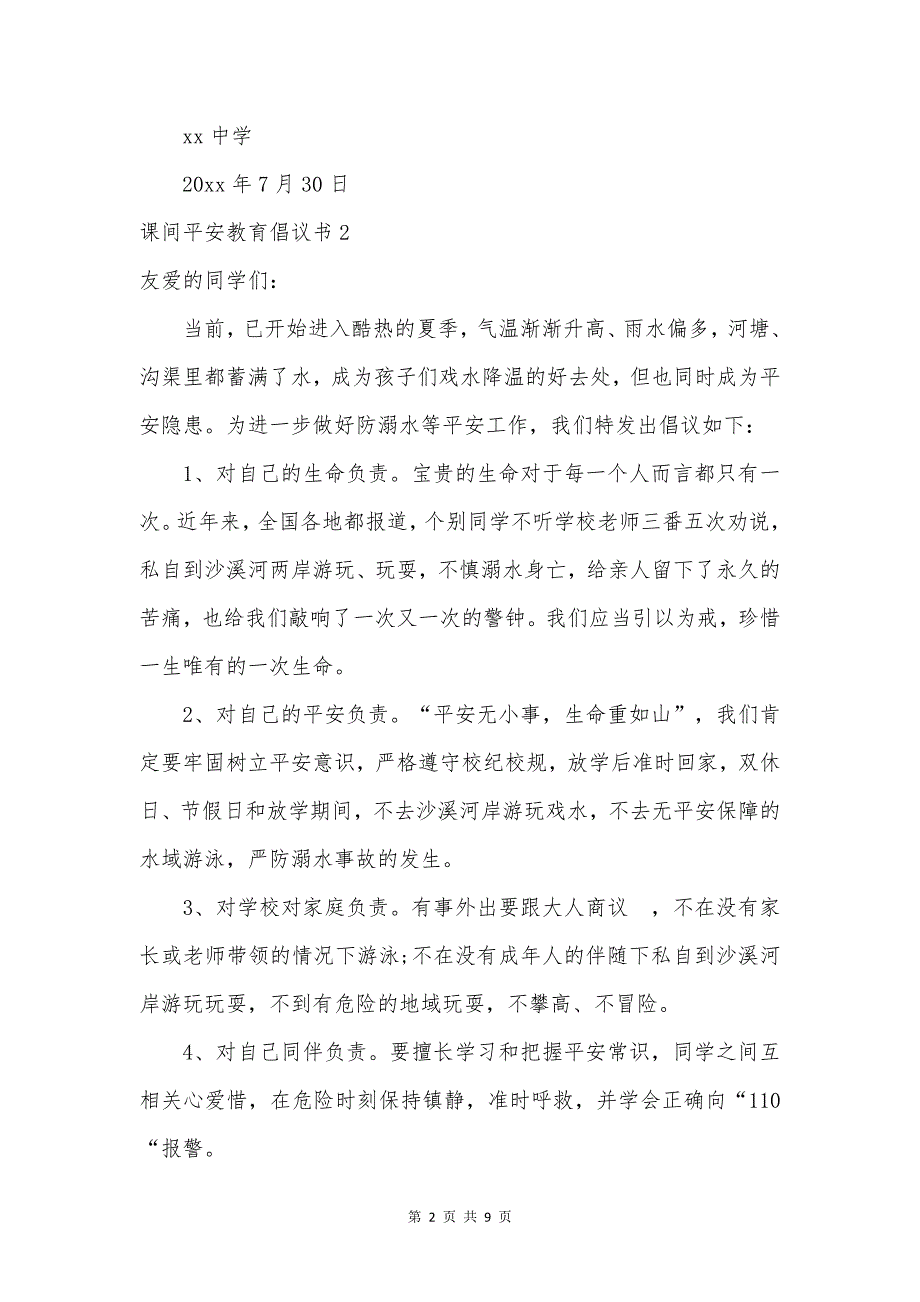 xx 中学
20xx 年 7 月 30 日
课间平安教育倡议书 2
友爱的同学们：
当前，已开始进入酷热的夏季，气温渐渐升高、雨水偏多，河塘、
沟渠里都蓄满了水，成为孩子们戏水降温的好去处，但也同时成为平
安隐患。为进一步做好防溺水等平安工作，我们特发出倡议如下：
1、对自己的生命负责。宝贵的生命对于每一个人而言都只有一
次。近年来，全国各地都报道，个别同学不听学校老师三番五次劝说，
私自到沙溪河两岸游玩、玩耍，不慎溺水身亡，给亲人留下了永久的
苦痛，也给我们敲响了一次又一次的警钟。我们应当引以为戒，珍惜
一生唯有的一次生命。
2、对自己的平安负责。“平安无小事，生命重如山”，我们肯
定要牢固树立平安意识，严格遵守校纪校规，放学后准时回家，双休
日、节假日和放学期间，不去沙溪河岸游玩戏水，不去无平安保障的
水域游泳，严防溺水事故的发生。
3、对学校对家庭负责。有事外出要跟大人商议　，不在没有家
长或老师带领的情况下游泳;不在没有成年人的伴随下私自到沙溪河
岸游玩玩耍，不到有危险的地域玩耍，不攀高、不冒险。
4、对自己同伴负责。要擅长学习和把握平安常识，同学之间互
相关心爱惜，在危险时刻保持镇静，准时呼救，并学会正确向“110
“报警。
第 2 页 共 9 页